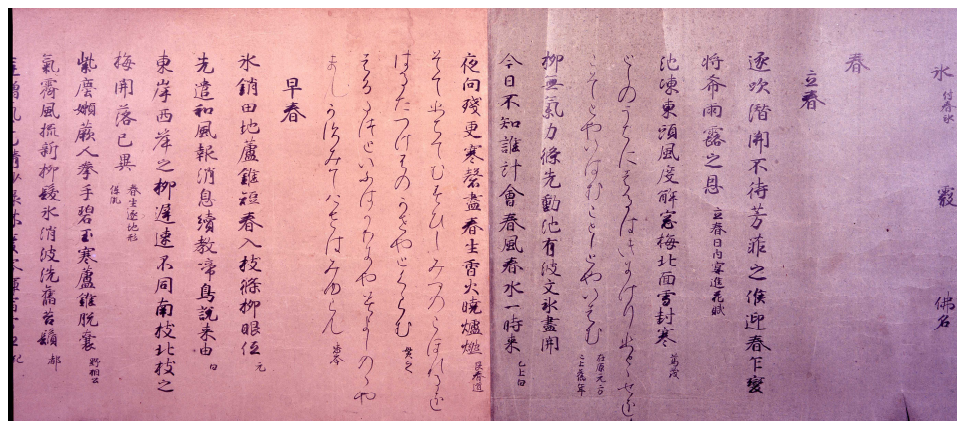 氷 付春氷 霰 佛名
春
立春
逐吹潜開不待芳菲之候迎春乍變
将希雨露之恩 立春日内宴進花賦
池凍東頭風度解窓梅北面雪封寒 篤茂
としのうちにはるはきにけりひとゝせを
こそとやいはむことしとやいはむ 在原元方
柳無氣力條先動池有波文氷盡開
今日不知誰計會春風春水一時来 已上白
夜向殘更寒磬盡春生香火曉爐燃 良春道
そてひちてむすひしみつのこほれるを
はるたつけふのかせやとくらむ 貫之
はるたつといふはかりにやみよしのゝや
ましもかすみてけさはみゆらん 忠岑
早春
氷銷田地蘆錐短春入枝條柳眼低 元
先遣和風報消息續教啼鳥説来由 白
東岸西岸之柳遅速不同南枝北枝之
梅開落已異 春生逐地形 保胤
紫塵嬾蕨人拳手碧玉寒蘆錐脱嚢 野相公
氣霽風梳新柳髪氷消波洗舊苔鬚 都